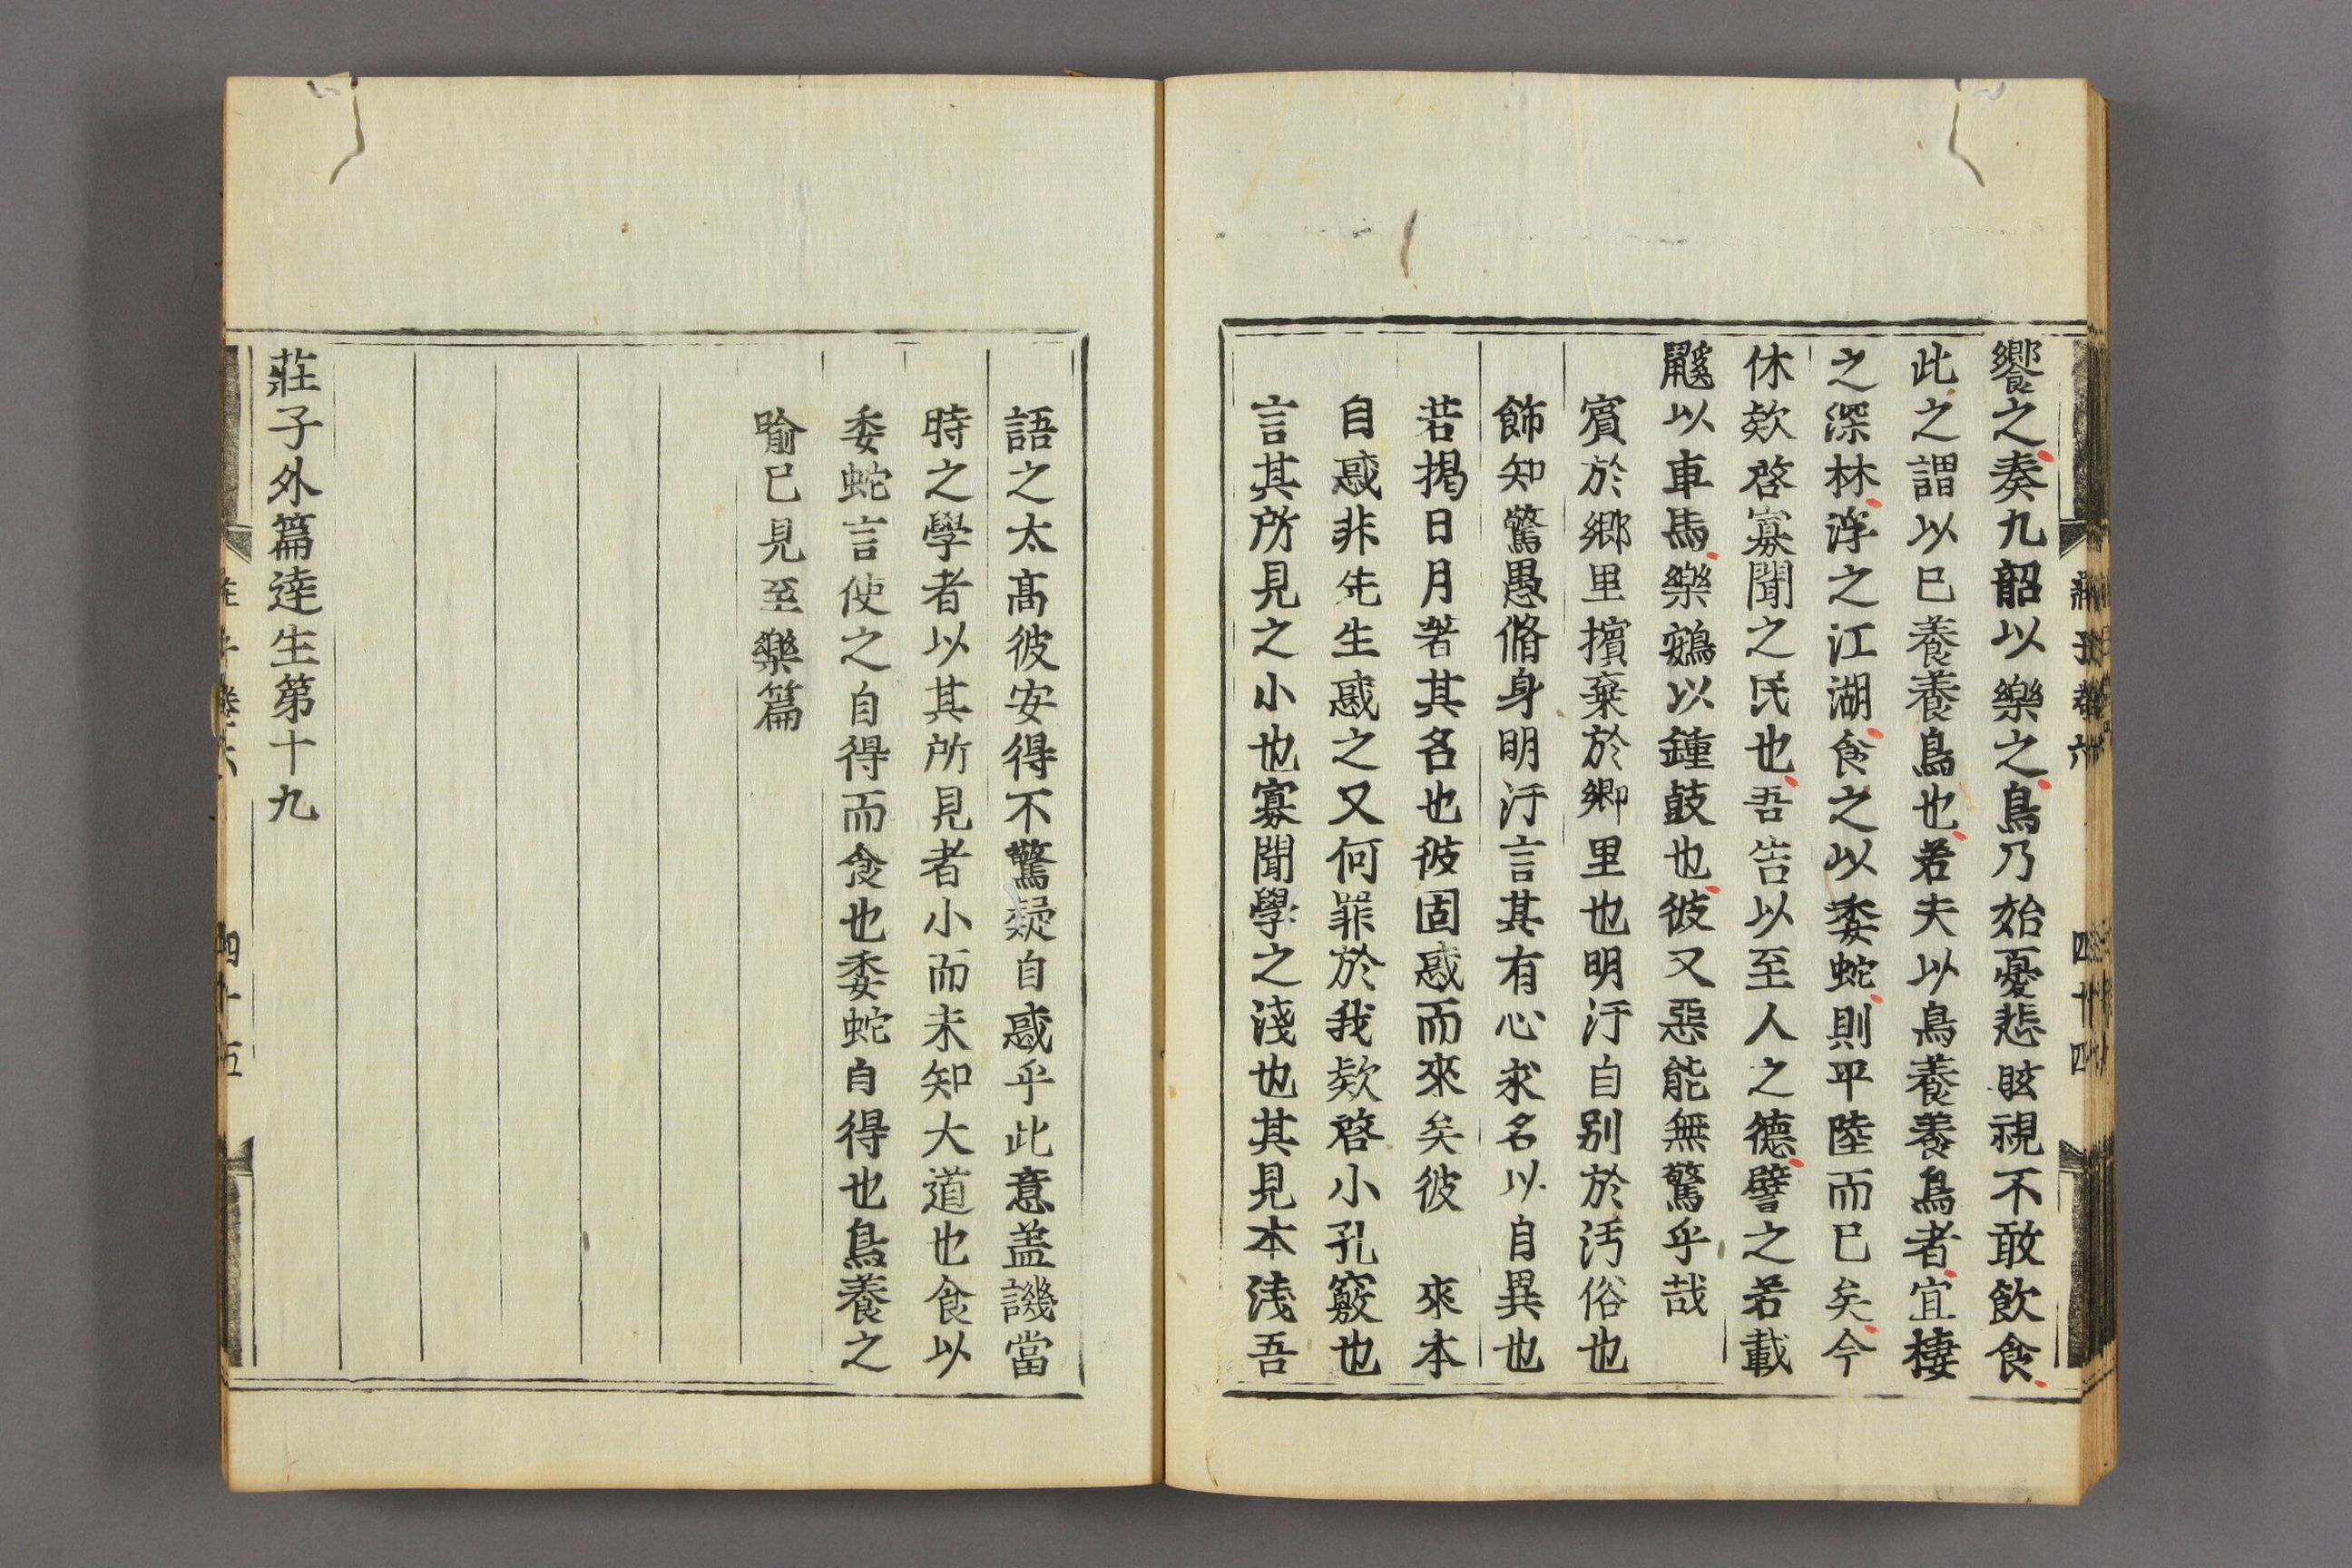 饗之奏九韶以樂之鳥乃始憂悲眩視不敢飲食
此之謂以已養養鳥也若夫以鳥養養鳥者宜棲
之深林浮之江湖食之以委蛇則平陸而已矣今
休欵啓寡聞之民也吾告以至人之德譬之若載
鼷以車馬樂鴳以鍾鼓也彼又惡能無驚乎哉
賓於鄉里擯棄於鄉里也明汙自别於汚俗也
飾知驚愚脩身明汙言其有心求名以自異也
若揭日月著其名也彼固惑而來矣彼 來本
自惑非先生惑之又何罪於我欵啓小孔竅也
言其所見之小也寡聞學之淺也其見本淺吾
莊子卷六 四十四
語之太高彼安得不驚疑自惑乎此意盖譏當
時之學者以其所見者小而未知大道也食以
委蛇言使之自得而食也委蛇自得也鳥養之
喻已見至樂篇
莊子外篇達生第十九
莊子卷六 四十五